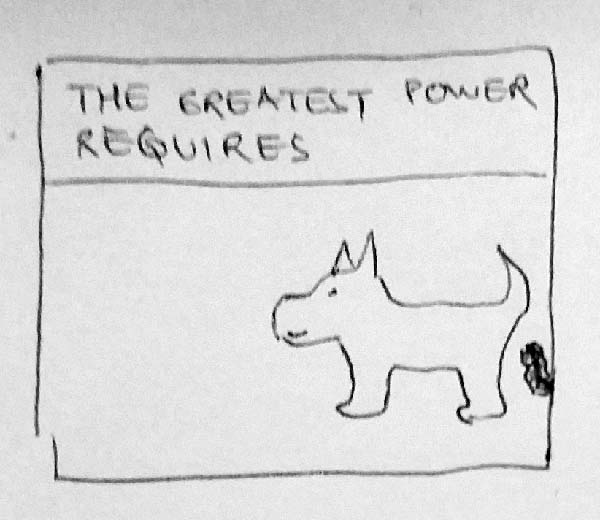 THE GREATEST POWER
REQUIRES